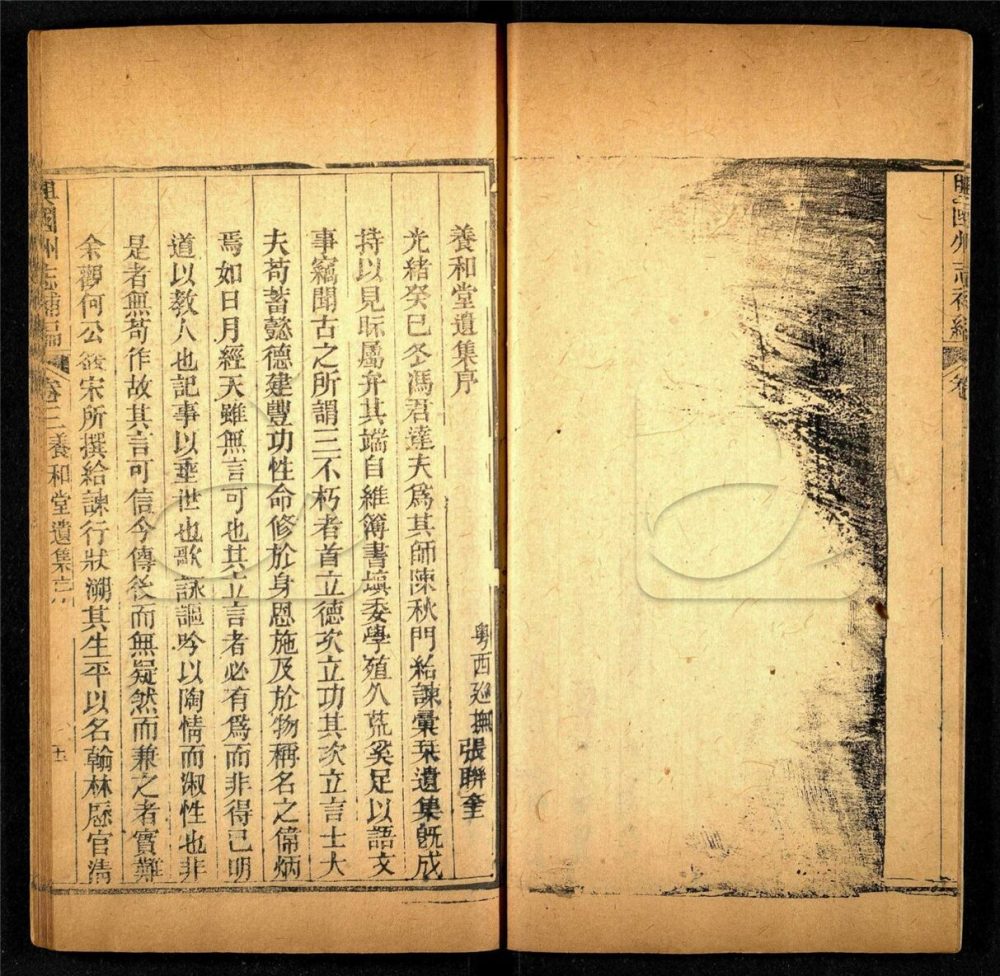 養和堂遺集序
粵西廵撫張聯奎
光緒癸巳冬馮君達夫爲其師陳秋門給諫彙栞遺集旣成
持以見眎屬弁其端自維簿書塡委學殖久荒奚足以語文
事竊聞古之所謂三不朽者首立德次立功其次立言士大
夫苟蓄懿德建豐功性命修於身恩施及於物稱名之偉炳
焉如日月經天雖無言可也其立言者必有爲而非得已明
道以教人也記事以垂世也歌詠謳吟以陶情而淑性也非
是者無苟作故其言可信今傳後而無疑然而兼之者實難
余觀何公宋所撰給諫行狀溯其生平以名翰林歴官清
興國州志補編 卷三養和堂遺集序
興國州志補編 卷